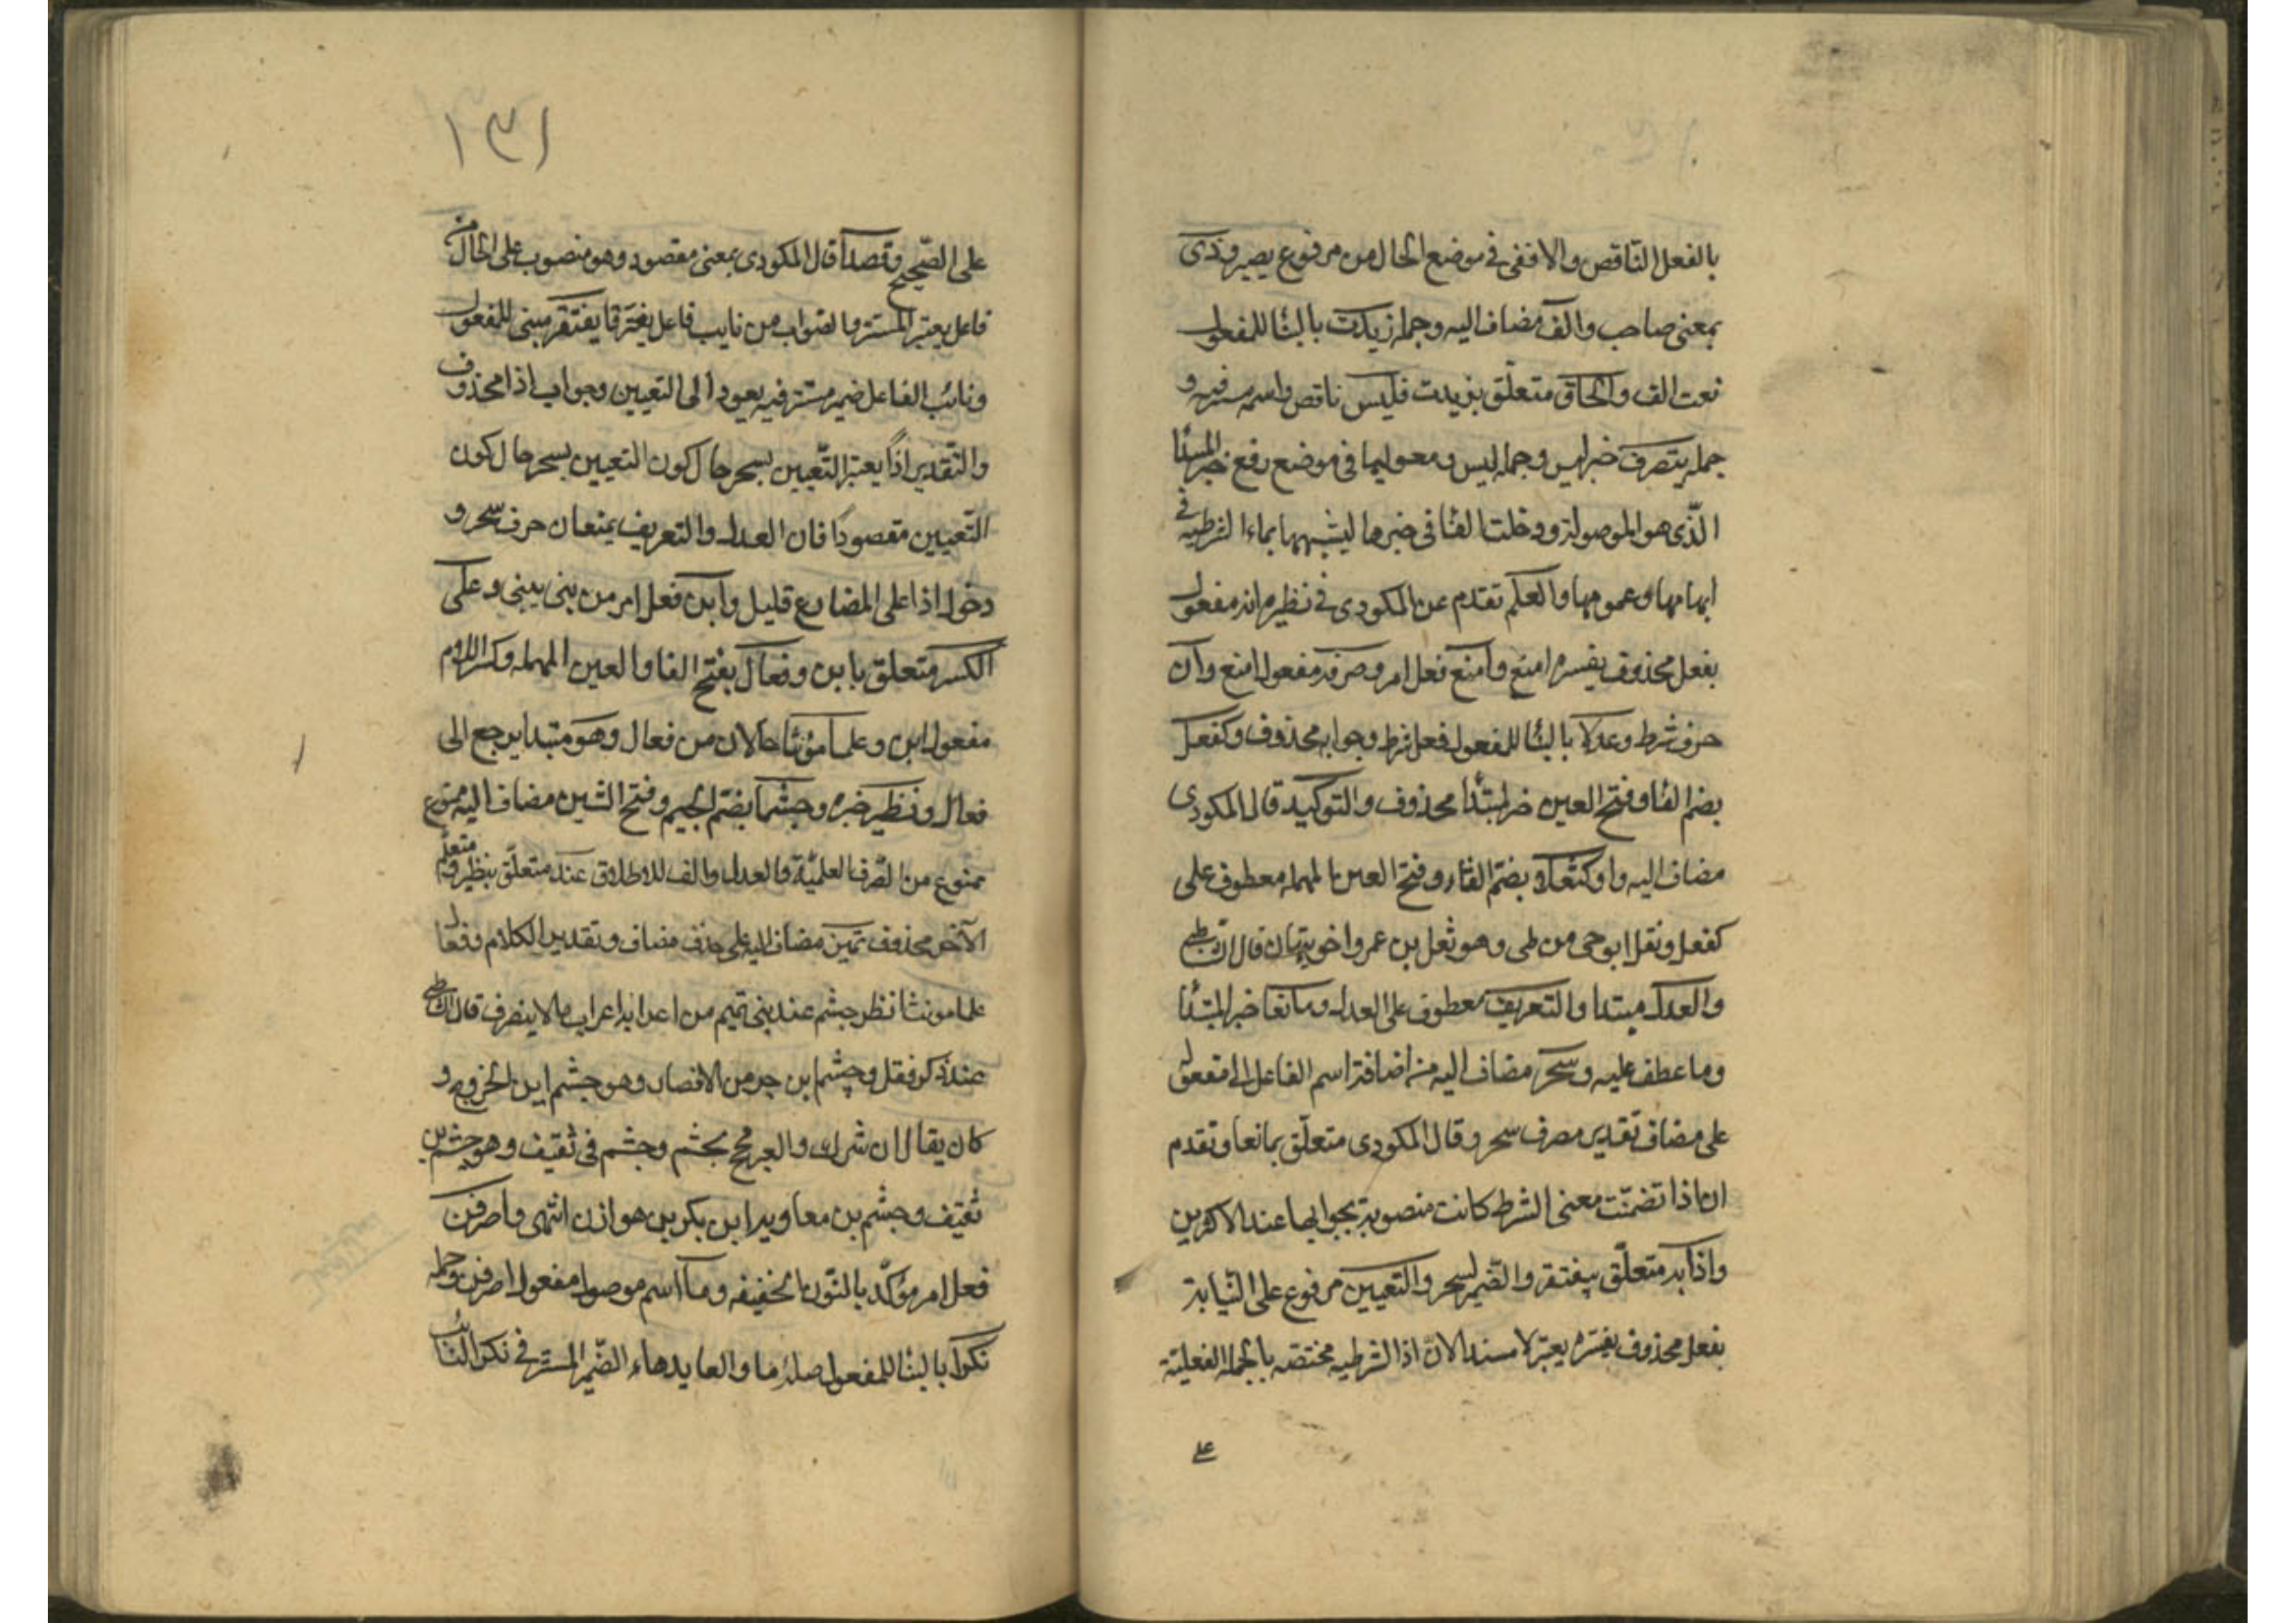 بالفعل الناقص والافقى فى موضع الحال من مرفوع يصير وذى
بمعنى صاحب والف مضاف اليه وجملة زيدت بالبنا للمفعول
نعت الف والحاق متعلّق بزيدت فليس ناقص واسمه مستتر فيه و
جملة يتصرف خبر ليس وجملة ليس ومعموليها فى موضع رفع خبر المبتدا
الّذى هو الموصولة ودخلت الفا فى خبرها ليشبهها بماء الشرطيه فى
ابهامها وعمومها والعلم تقدم عن المكودى فى نظيره انه مفعول
بفعل محذوف يفسره امنع وامنع فعل امر وصرفه مفعول امنع وان
حرف شرط وعدلا بالبنا للمفعول فعل شرط وجوابه محذوف وكفعل
بضم الفا وفتح العين خبر مبتدا محذوف والتوكيد قال المكودى
مضاف اليه واو كثعلا بضم الثاء وفتح العين المهملة معطوف على
كفعل وثعل ابو حى من طى وهو ثعل بن عمرو اخو نبهان قال الشاطبى
والعدل مبتدا والتعريف معطوف على العدل ومانعا خبر المبتدا
وما عطف عليه وسحر مضاف اليه من اضافة اسم الفاعل الى مفعوله
على مضاف تقديره صرف سحر وقال المكودى متعلّق بمانعا وتقدم
ان اذا تضمّنت معنى الشرط كانت منصوبة بجوابها عند الاكثرين
واذا به متعلّق بيفتقر والضمير لسحر والتعيين مرفوع على النيابة
بفعل محذوف يفسّره يعتبر لا مبتدا لانّ اذا الشرطيه مختصّه بالجملة الفعليّة
على
١٣١
على الصّحيح وقصدا قال المكودى بمعنى مقصود وهو منصوب على الحال من
فاعل يعتبر المستتر والصّواب من نايب فاعل يعتبر قا يفتقر مبنى للمفعول
ونائب الفاعل ضمير مستتر فيه يعود الى التعيين وجواب اذا محذوف
والتقدير اذا يعتبر التّعيين بسحر حال كون التعيين بسحر حال كون
التّعيين مقصودا فان العدل والتعريف يمنعان صرف سحر و
دخول اذا على المضارع قليل وابن فعل امر من بنى يبنى وعلى
الكسر متعلق بابن وفعال بفتح الفا والعين المهمله وكسر اللام
مفعول ابن وعلما مؤنثا حالان من فعال وهو مبتدا يرجع الى
فعال ونظير خبره وجشما بضم الجيم وفتح الشين مضاف اليه ممنوع
ممنوع من الصّرف العلميّة والعدل والف للاطلاق عند متعلّق بنظير ومتعلّق
الآخر محذوف تميم مضاف اليه على حذف مضاف وتقدير الكلام وفعال
علما مونثا نظر جشم عند بنى تميم من اعرابه اعراب ما لا ينصرف قال الشاطبى
عند ذكر فقل وجشم ابن من الانصار وهو جشم ابن الخزرج و
كان يقال ان شرك والعر بجشم وجشم فى ثقيف وهو جشم بن
ثقيف وجشم بن معاوية ابن بكر بن هوازن انتهى واصرفن
فعل امر مؤكّد بالنّون الخفيفه وما اسم موصول مفعول اصرفن وجملة
نكرا بالبنا للمفعول صلة ما والعايد هاء الضّمير المستتر فى نكر النائب